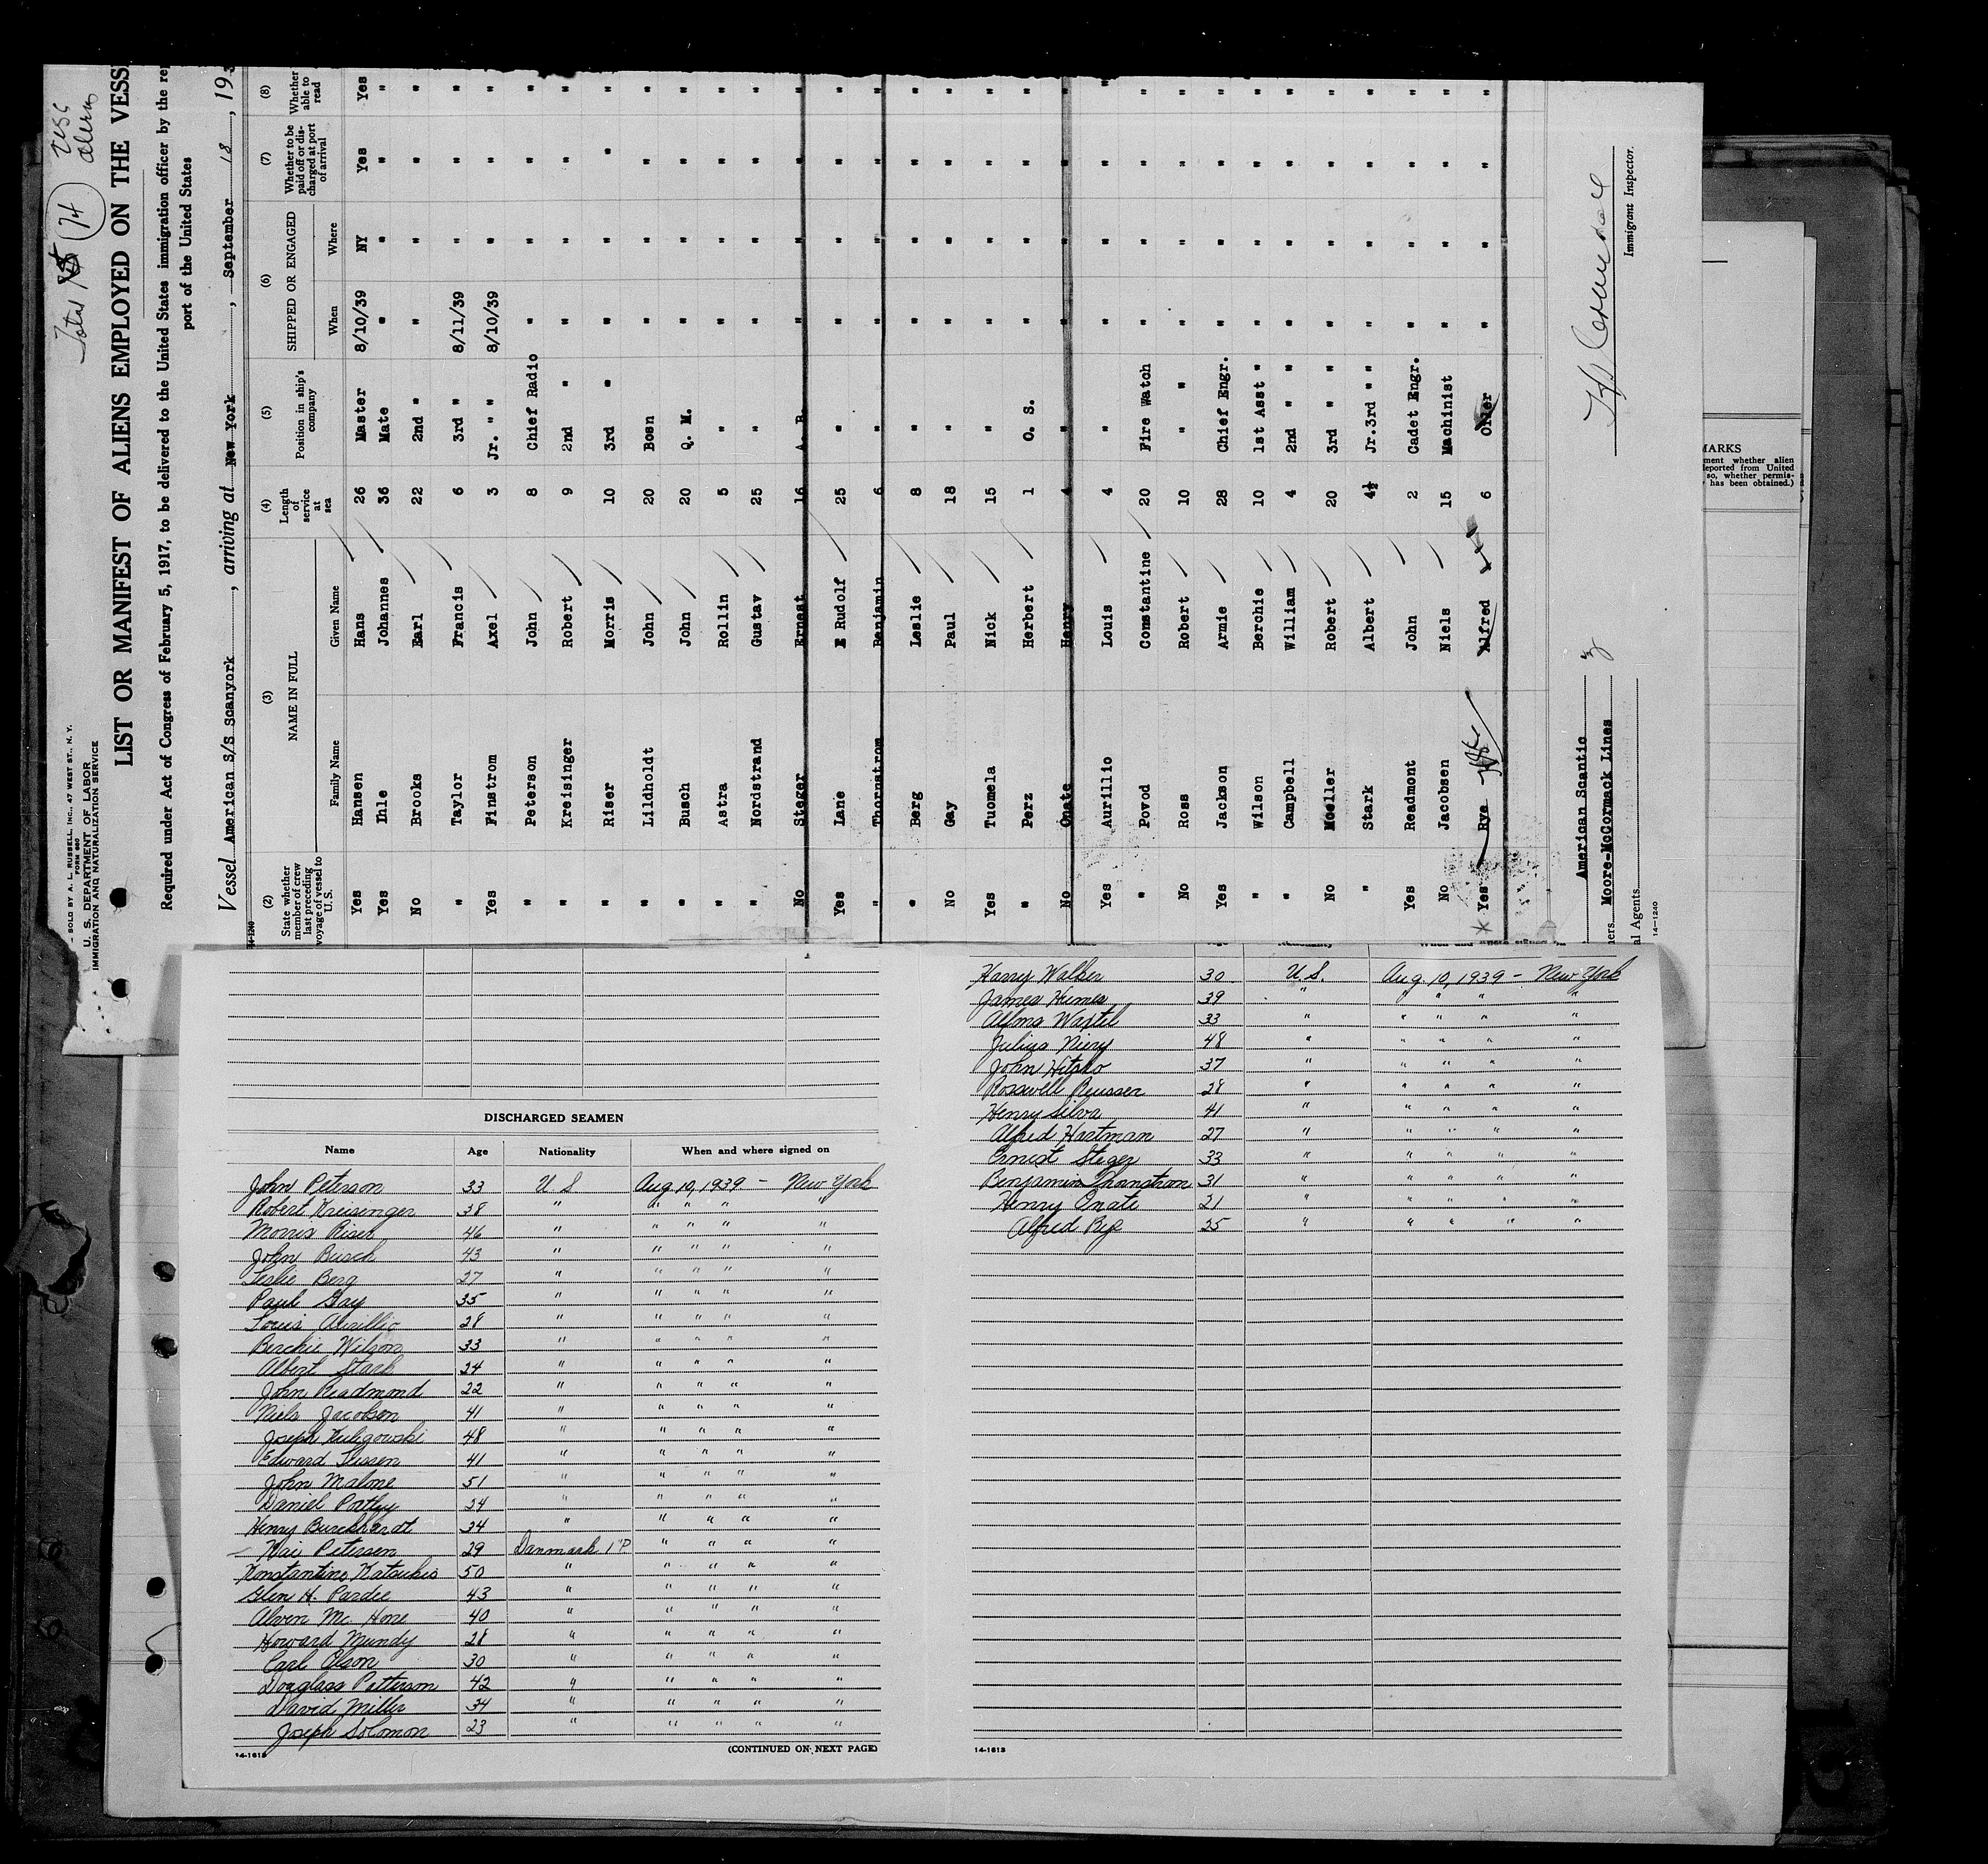 Total 74
USC
aliens
SOLD BY A. L. RUSSELL, INC., 47 WEST ST., N. Y.
FORM 680
U. S. DEPARTMENT OF LABOR
IMMIGRATION AND NATURALIZATION SERVICE
LIST OR MANIFEST OF ALIENS EMPLOYED ON THE VESS
Required under Act of Congress of February 5, 1917, to be delivered to the United States immigration officer by the rep
port of the United States
Vessel American S/S Scanyork, arriving at New York, September 18, 193
14-1240
(2) (3) (4) (5) (6) (7) (8)
State whether member of crew last preceding voyage of vessel to U. S. NAME IN FULL Length of service at sea Position in ship's company SHIPPED OR ENGAGED Whether to be paid off or discharged at port of arrival Whether able to read
Family Name Given Name When Where
Yes Hansen Hans 26 Master 8/10/39 NY Yes Yes
Yes Ihle Johannes 36 Mate " " " "
No Brooks Earl 22 2nd " " " " "
" Taylor Francis 6 3rd " 8/11/39 " " "
Yes Finstrom Axel 3 Jr. " " 8/10/39 " " "
" Peterson John 8 Chief Radio " " " "
" Kreisinger Robert 9 2nd " " " " "
" Riser Morris 10 3rd " " " " "
" Lildholdt John 20 Bosn " " " "
" Busch John 20 Q. M. " " " "
" Astra Rollin 5 " " " " "
" Nordstrand Gustav 25 " " " " "
No Steger Ernest 16 A. B. " " " "
Yes Lane E Rudolf 25 " " " " "
" Thornstrom Benjamin 6 " " " " "
" Berg Leslie 8 " " " " "
No Gay Paul 18 " " " " "
Yes Tuomela Nick 15 " " " " "
" Perz Herbert 1 O. S. " " " "
No Onate Henry 4 " " " "
Yes Aurillio Louis 4 " " " " "
" Povod Constantine 20 Fire Watch " " " "
No Ross Robert 10 " " " " " "
Yes Jackson Armie 28 Chief Engr. " " " "
" Wilson Berchie 10 1st Asst " " " " "
" Campbell William 4 2nd " " " " " "
No Moeller Robert 20 3rd " " " " " "
" Stark Albert 4½ Jr.3rd " " " " " "
Yes Readmont John 2 Cadet Engr. " " " "
No Jacobsen Niels 15 Machinist " " " "
* Yes Rye Alfred 6 Oiler " " " "
American Scantic
ners Moore-McCormack Lines
al Agents
14-1240
Immigrant Inspector.
MARKS
ment whether alien
deported from United
so, whether permis-
has been obtained.)
DISCHARGED SEAMEN
Name Age Nationality When and where signed on
John Peterson 33 U S Aug 10, 1939 - New York
Robert Kreisenger 38 " " " " "
Morris Riser 46 " " " " "
John Busch 43 " " " " "
Leslie Berg 27 " " " " "
Paul Gay 35 " " " " "
Louis Aurillio 28 " " " " "
Berchie Wilson 33 " " " " "
Albert Stark 24 " " " " "
John Readmond 22 " " " " "
Niels Jacobsen 41 " " " " "
Joseph Kuligowski 48 " " " " "
Edward 41 " " " " "
John Malone 51 " " " " "
Daniel Portley 24 " " " " "
Henry Burckhardt 34 " " " " "
Kai Petersen 29 Danmark " " " "
Konstantine Katsukis 50 " " " " "
Glen H. Pardee 43 " " " " "
Alven Mc. Hone 40 " " " " "
Howard Mundy 28 " " " " "
Carl Olson 30 " " " " "
Douglass Patterson 42 " " " " "
David Miller 34 " " " " "
Joseph Solomon 23 " " " " "
14-1613
(CONTINUED ON NEXT PAGE)
Harry Walker 30 U.S. Aug. 10, 1939 - New York
James Humes 39 " " " " "
33 " " " " "
Julius 48 " " " " "
John Hitsko 37 " " " " "
Rosswell Reusser 28 " " " " "
Henry Silva 41 " " " " "
Alfred Hartman 27 " " " " "
Ernest Steger 33 " " " " "
Benjamin Thornstrom 31 " " " " "
Henry Onate 21 " " " " "
Alfred Rye 25 " " " " "
14-1613